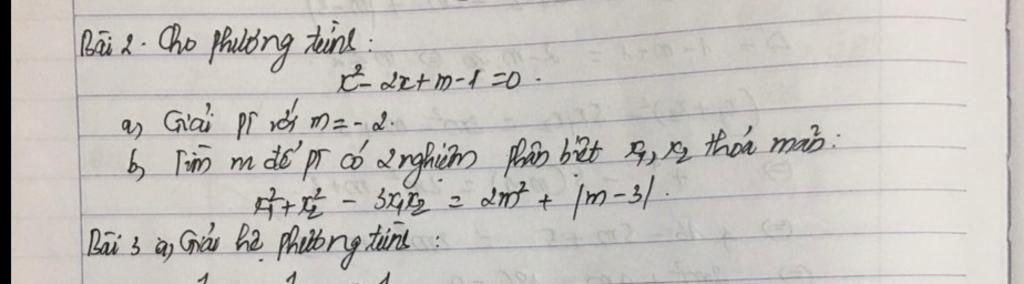 Bài 2. Cho phương trình:
x² - 2x + m - 1 = 0.
a, Giải PT với m = - 2.
b, Tìm m để PT có 2 nghiệm phân biệt x₁, x₂ thoả mãn:
x₁² + x₂² - 3x₁x₂ = 2m² + |m - 3|.
Bài 3 a, Giải hệ phương trình: